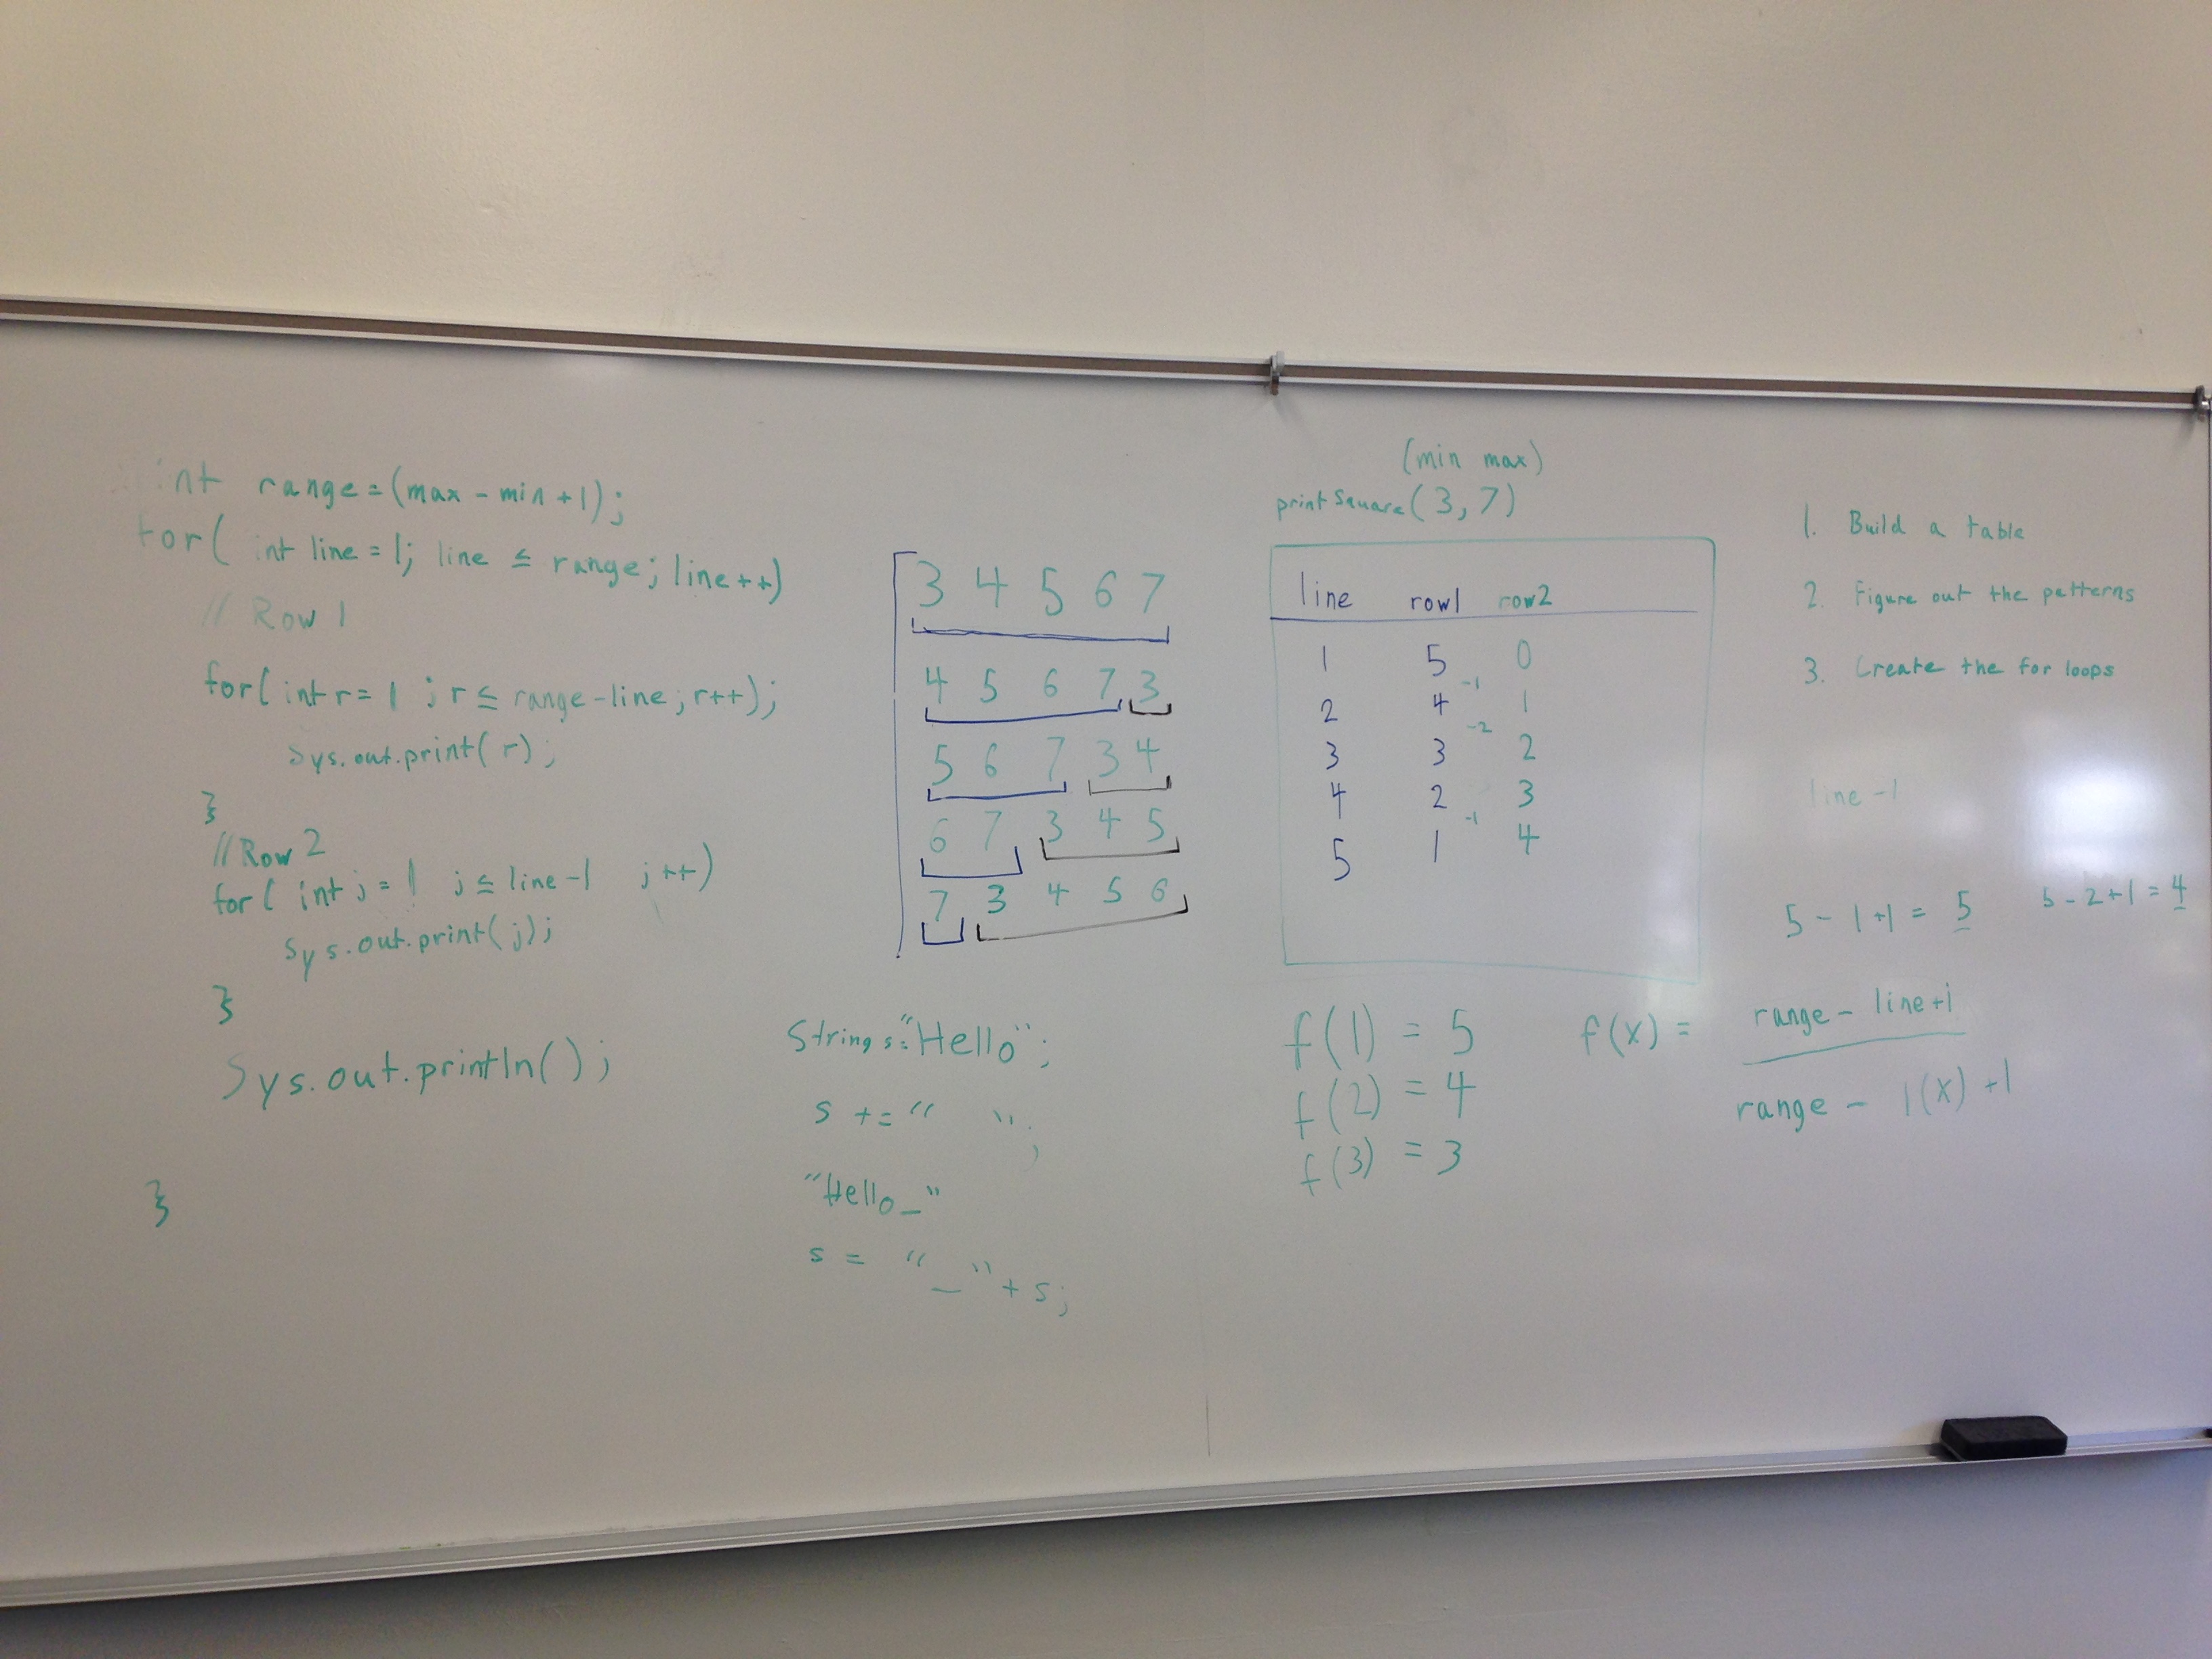 int range = (max - min + 1);
for( int line = 1; line ≤ range; line++)
// Row 1
for( int r = 1 ; r ≤ range - line ; r++);
Sys.out.print( r);
}
// Row 2
for( int j = 1 j ≤ line-1 j++)
Sys.out.print( j);
}
Sys.out.println();
}
3 4 5 6 7
4 5 6 7 3
5 6 7 3 4
6 7 3 4 5
7 3 4 5 6
String s = "Hello";
s += " ";
"Hello_"
s = "_" + s;
(min max)
printSquare( 3, 7)
line row1 row2
1 5 0
-1
2 4 1
-2
3 3 2
4 2 3
-1
5 1 4
f(1) = 5
f(2) = 4
f(3) = 3
f(x) =
range - line+1
range - 1(x) +1
1. Build a table
2. Figure out the patterns
3. Create the for loops
line -1
5 - 1 +1 = 5
5 - 2 + 1 = 4